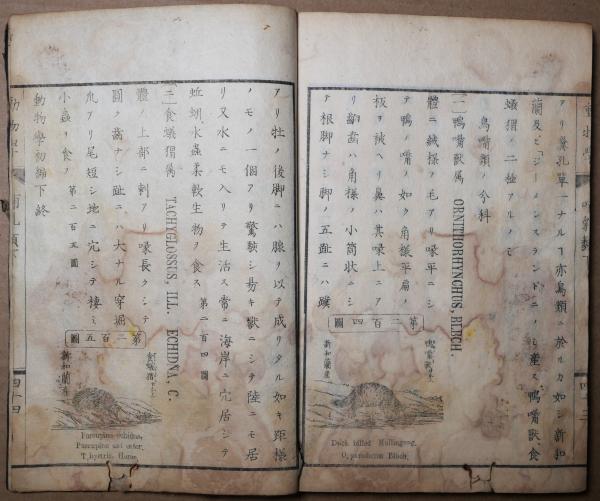 アリ鼻孔單一ナルヿ亦鳥類ニ於ルカ如シ新和
蘭及ヒ「ジーメンスランド」ニノミ産ス鴨嘴獸食
蟻猬ノ二種アルノミ
鳥嘴類ノ分科
鴨嘴獸属 ORNITHORHYNCHUS, BLBCH.
體ニ絨様ノ毛アリ喙平ニシ
テ鴨ノ嘴ノ如ク角樣平扁ノ
板ヲ被ヘリ鼻ハ其喙上ニア
リ齝齒ハ角様ノ小筒狀ニシ
テ根脚ナシ脚ノ五趾ニハ蹼
第二百四圖
新和蘭産
Duck billed Mullingong.
O. paradoxus Blbch.
アリ牡ノ後脚ニハ腺リ以テ成リタル如キ距様
ノモノ一個アリ驚駭シ易キ獸ニシテ陸ニモ居
リ又水ニモ入リテ生活ス常ニ海岸ニ穴居シテ
蚯蚓水蟲柔軟生物ヲ食ス 第二百四圖
二 食蟻猬属 TACHYGLOSSUS, ILL. ECHIDNA, C.
體ノ上部ニ刺アリ喙長クシテ
圓ク齒ナシ趾ニハ大ナル穿堀
爪アリ尾短シ地ニ穴シテ棲ミ
小蟲リ食フ 第二百五圖
第二百五圖
食蟻猬
新和蘭産
Porcupine echidna,
Porcupine ant eater.
T. hystrix, Home.
動物學初編下終
四十四